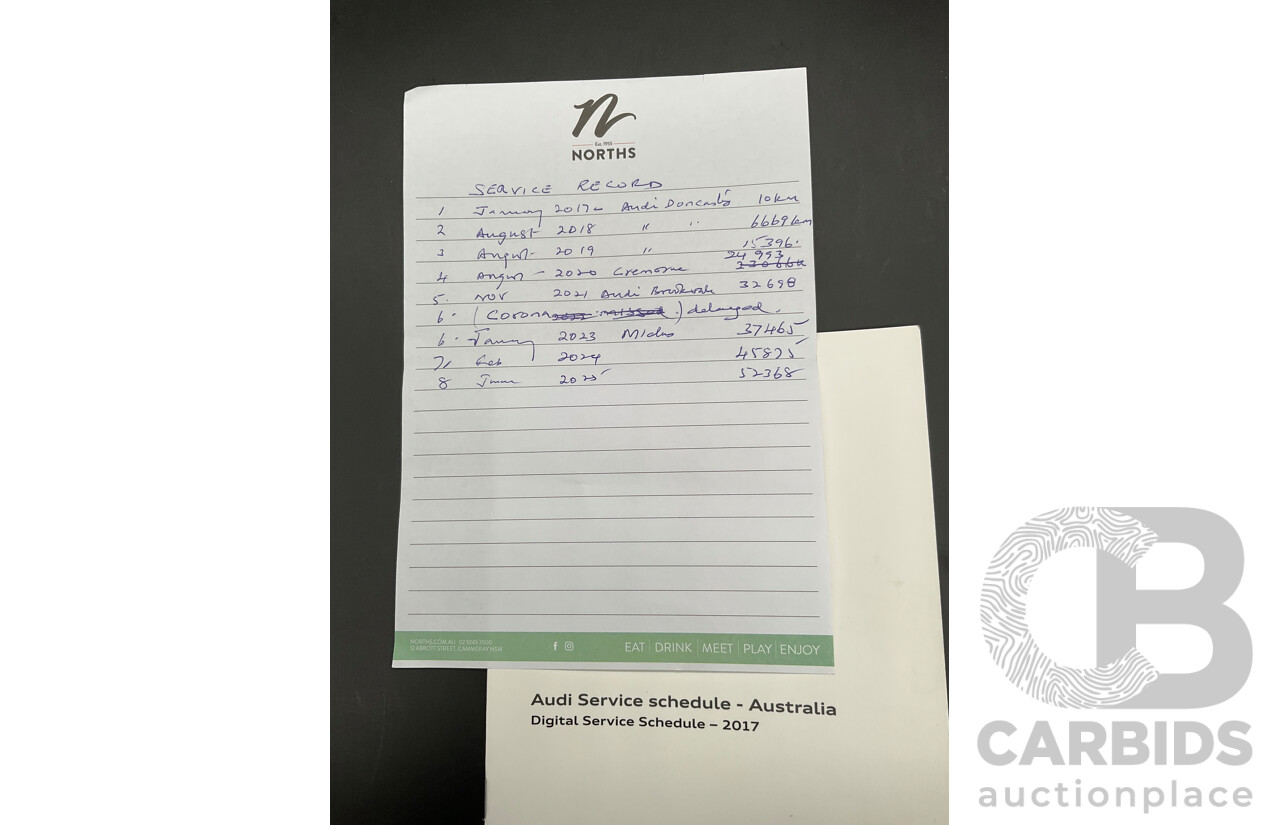 n
Est. 1955
NORTHS
SERVICE RECORD
1 January 2017 - Audi Doncaster 10km
2 August 2018 " " 6669km
3 August 2019 " 15396.
24 993
4 August - 2020 Cremorne
5. NOV 2021 Audi Brookvale 32698
6. (Corona ) delayed.
6. January 2023 Midas 37465
7 Feb 2024 45825
8 June 2025 52368
NORTHS.COM.AU 02 9245 3000
12 ABBOTT STREET, CAMMERAY NSW
EAT | DRINK | MEET | PLAY | ENJOY
Audi Service schedule - Australia
Digital Service Schedule – 2017
CB
CARBIDS
auctionplace